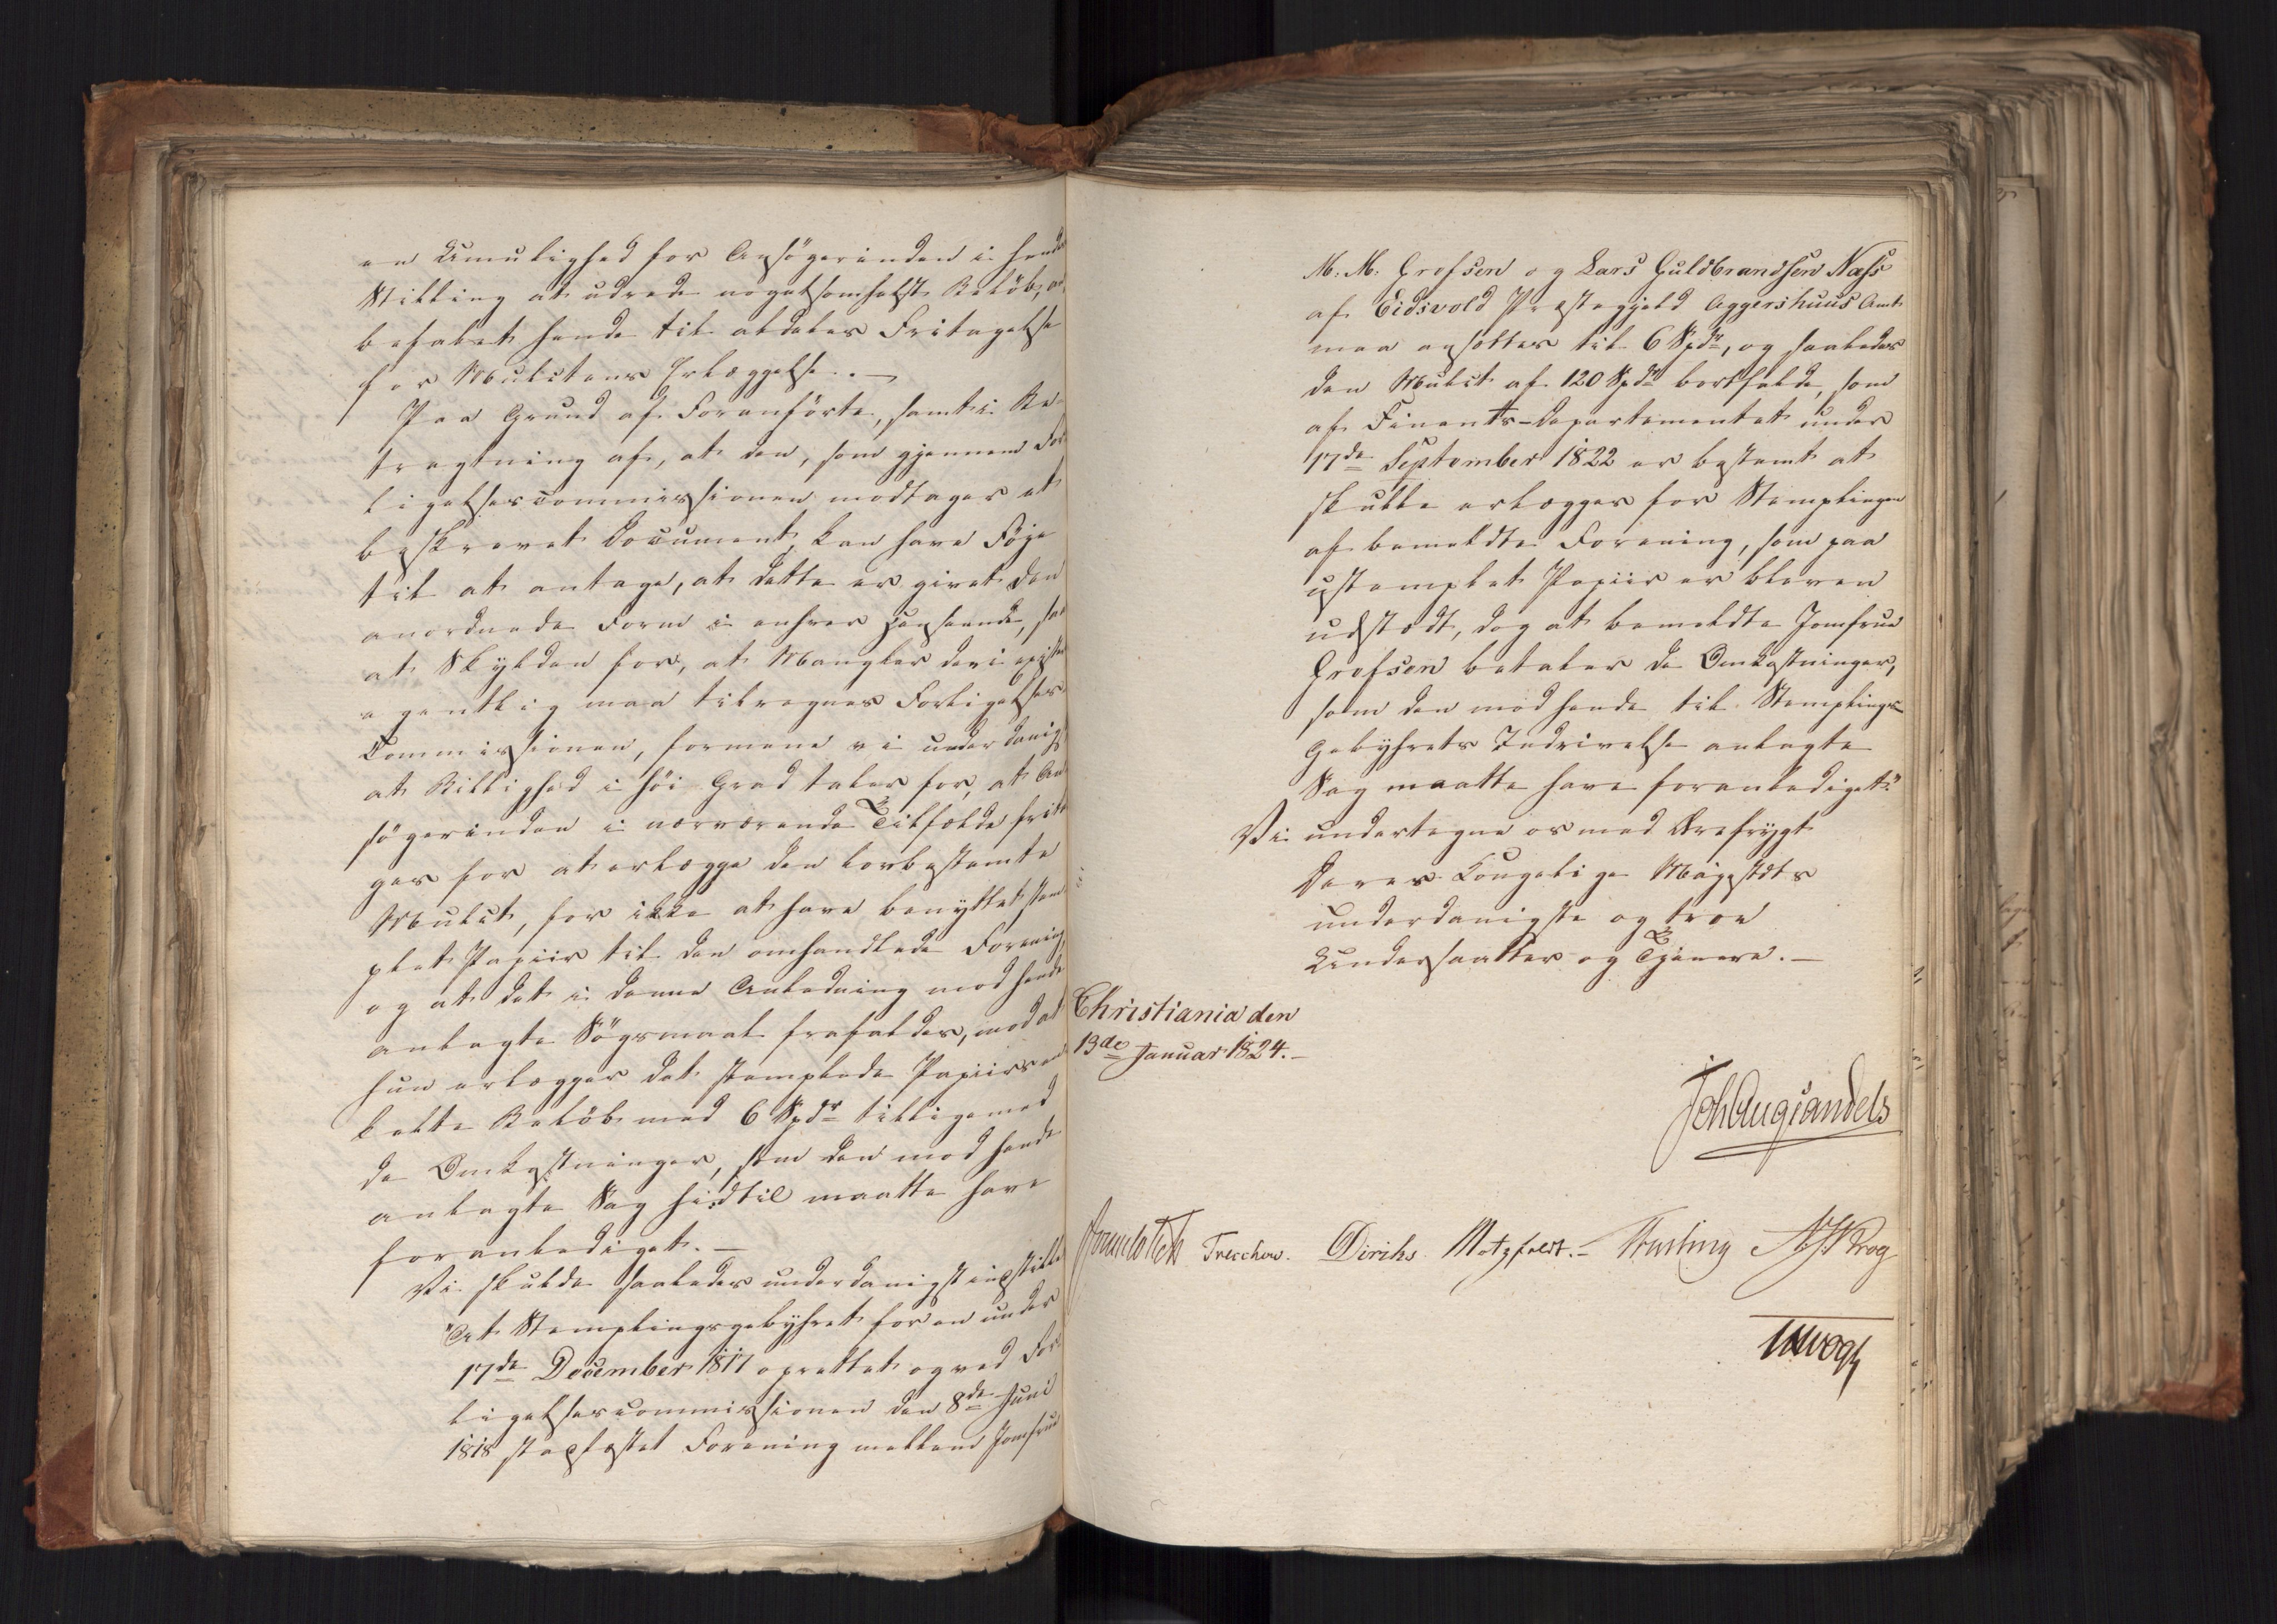 en Umulighed for Ansögerinden i hendes
Stilling at udrede nogetsomhelst Beløb, an
befalet hende til aldeles Fritagelse
for Mulctens Erlæggelse. —
Paa Grund af Foranförte, samt i Be-
tragtning af, at den, som gjennem For
ligelsescommissionen modtager et
beskrevet Document, kan have Föje
til at antage, at dette er givet den
anordnede Form i enhver Henseende, saa
at Skylden for, at Mangler deri existere
egentlig maa tilregnes Forligelses
Commissionen, formene vi underdanigst
at Billighed i höi Grad taler for, at An-
sögerinden i nærværende Tilfælde frita
ges for at erlægge den lovbestemte
Mulct, for ikke at have benyttet stem
plet Papiir til den omhandlede Forening,
og at det i denne Anledning mod hende
anlagte Sögsmaal frafaldes, mod at
hun erlægger det stemplede Papiirs en
kelte Belöb med 6 Spdr tilligemed
de Omkostninger, som den mod hende
anlagte Sag hidtil maatte have
foranlediget. —
Vi skulde saaledes underdanigst indstille
"At Stemplingsgebyhret for en under
17de December 1817 oprettet og ved For-
ligelsescommissionen den 8de Juni
1818 stadfæstet Forening mellem Jomfrue
M: M: Grofsen og Lars Guldbrandsen Næss
af Eidsvold Præstegjeld Aggershuus Amt
maa ansættes til 6 Spdr, og saaledes
den Mulct af 120 Spdr bortfalde, som
af Finants-Departementet under
17de September 1822 er bestemt at
skulle erlægges for Stemplingen
af bemeldte Forening, som paa
ustemplet Papiir er bleven
udstædt, dog at bemeldte Jomfrue
Grofsen betaler de Omkostninger,
som den mod hende til Stemplings-
Gebyhrets Inddrivelse anlagte
Sag maatte have foranlediget."
Vi undertegne os med Ærefrygt
Deres Kongelige Majestæts
underdanigste og troe
Undersaatter og Tjenere. —
Christiania den
13de Januar 1824. —
Joh Aug Sandels
Sommerhielm Treschow. Diriks Motzfeldt. — Fasting N J Krog
Vogt